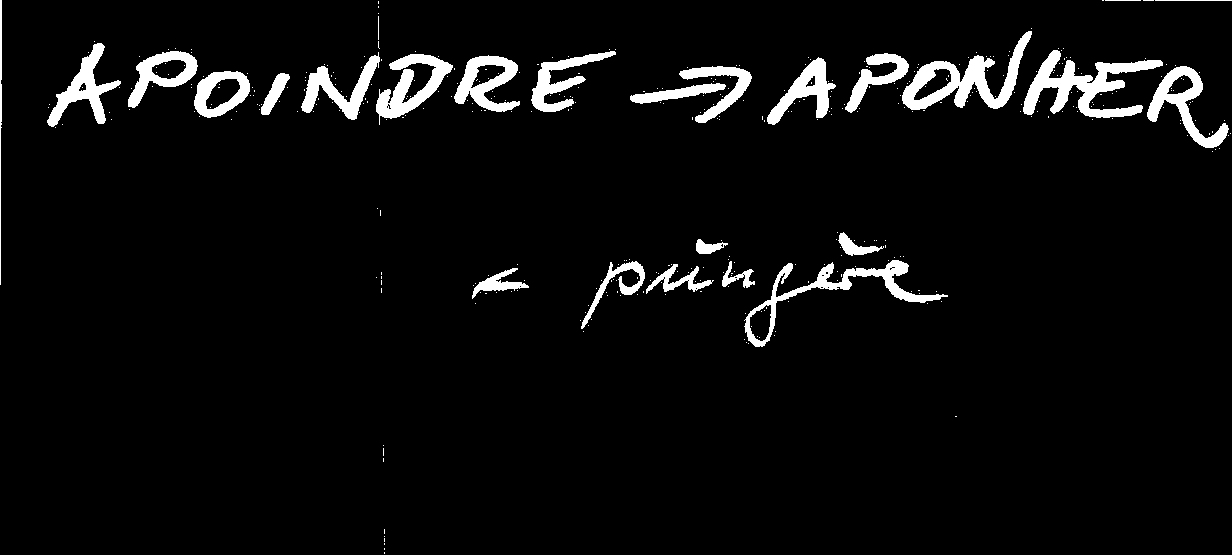 APOINDRE → APONHER
< pŭngĕre